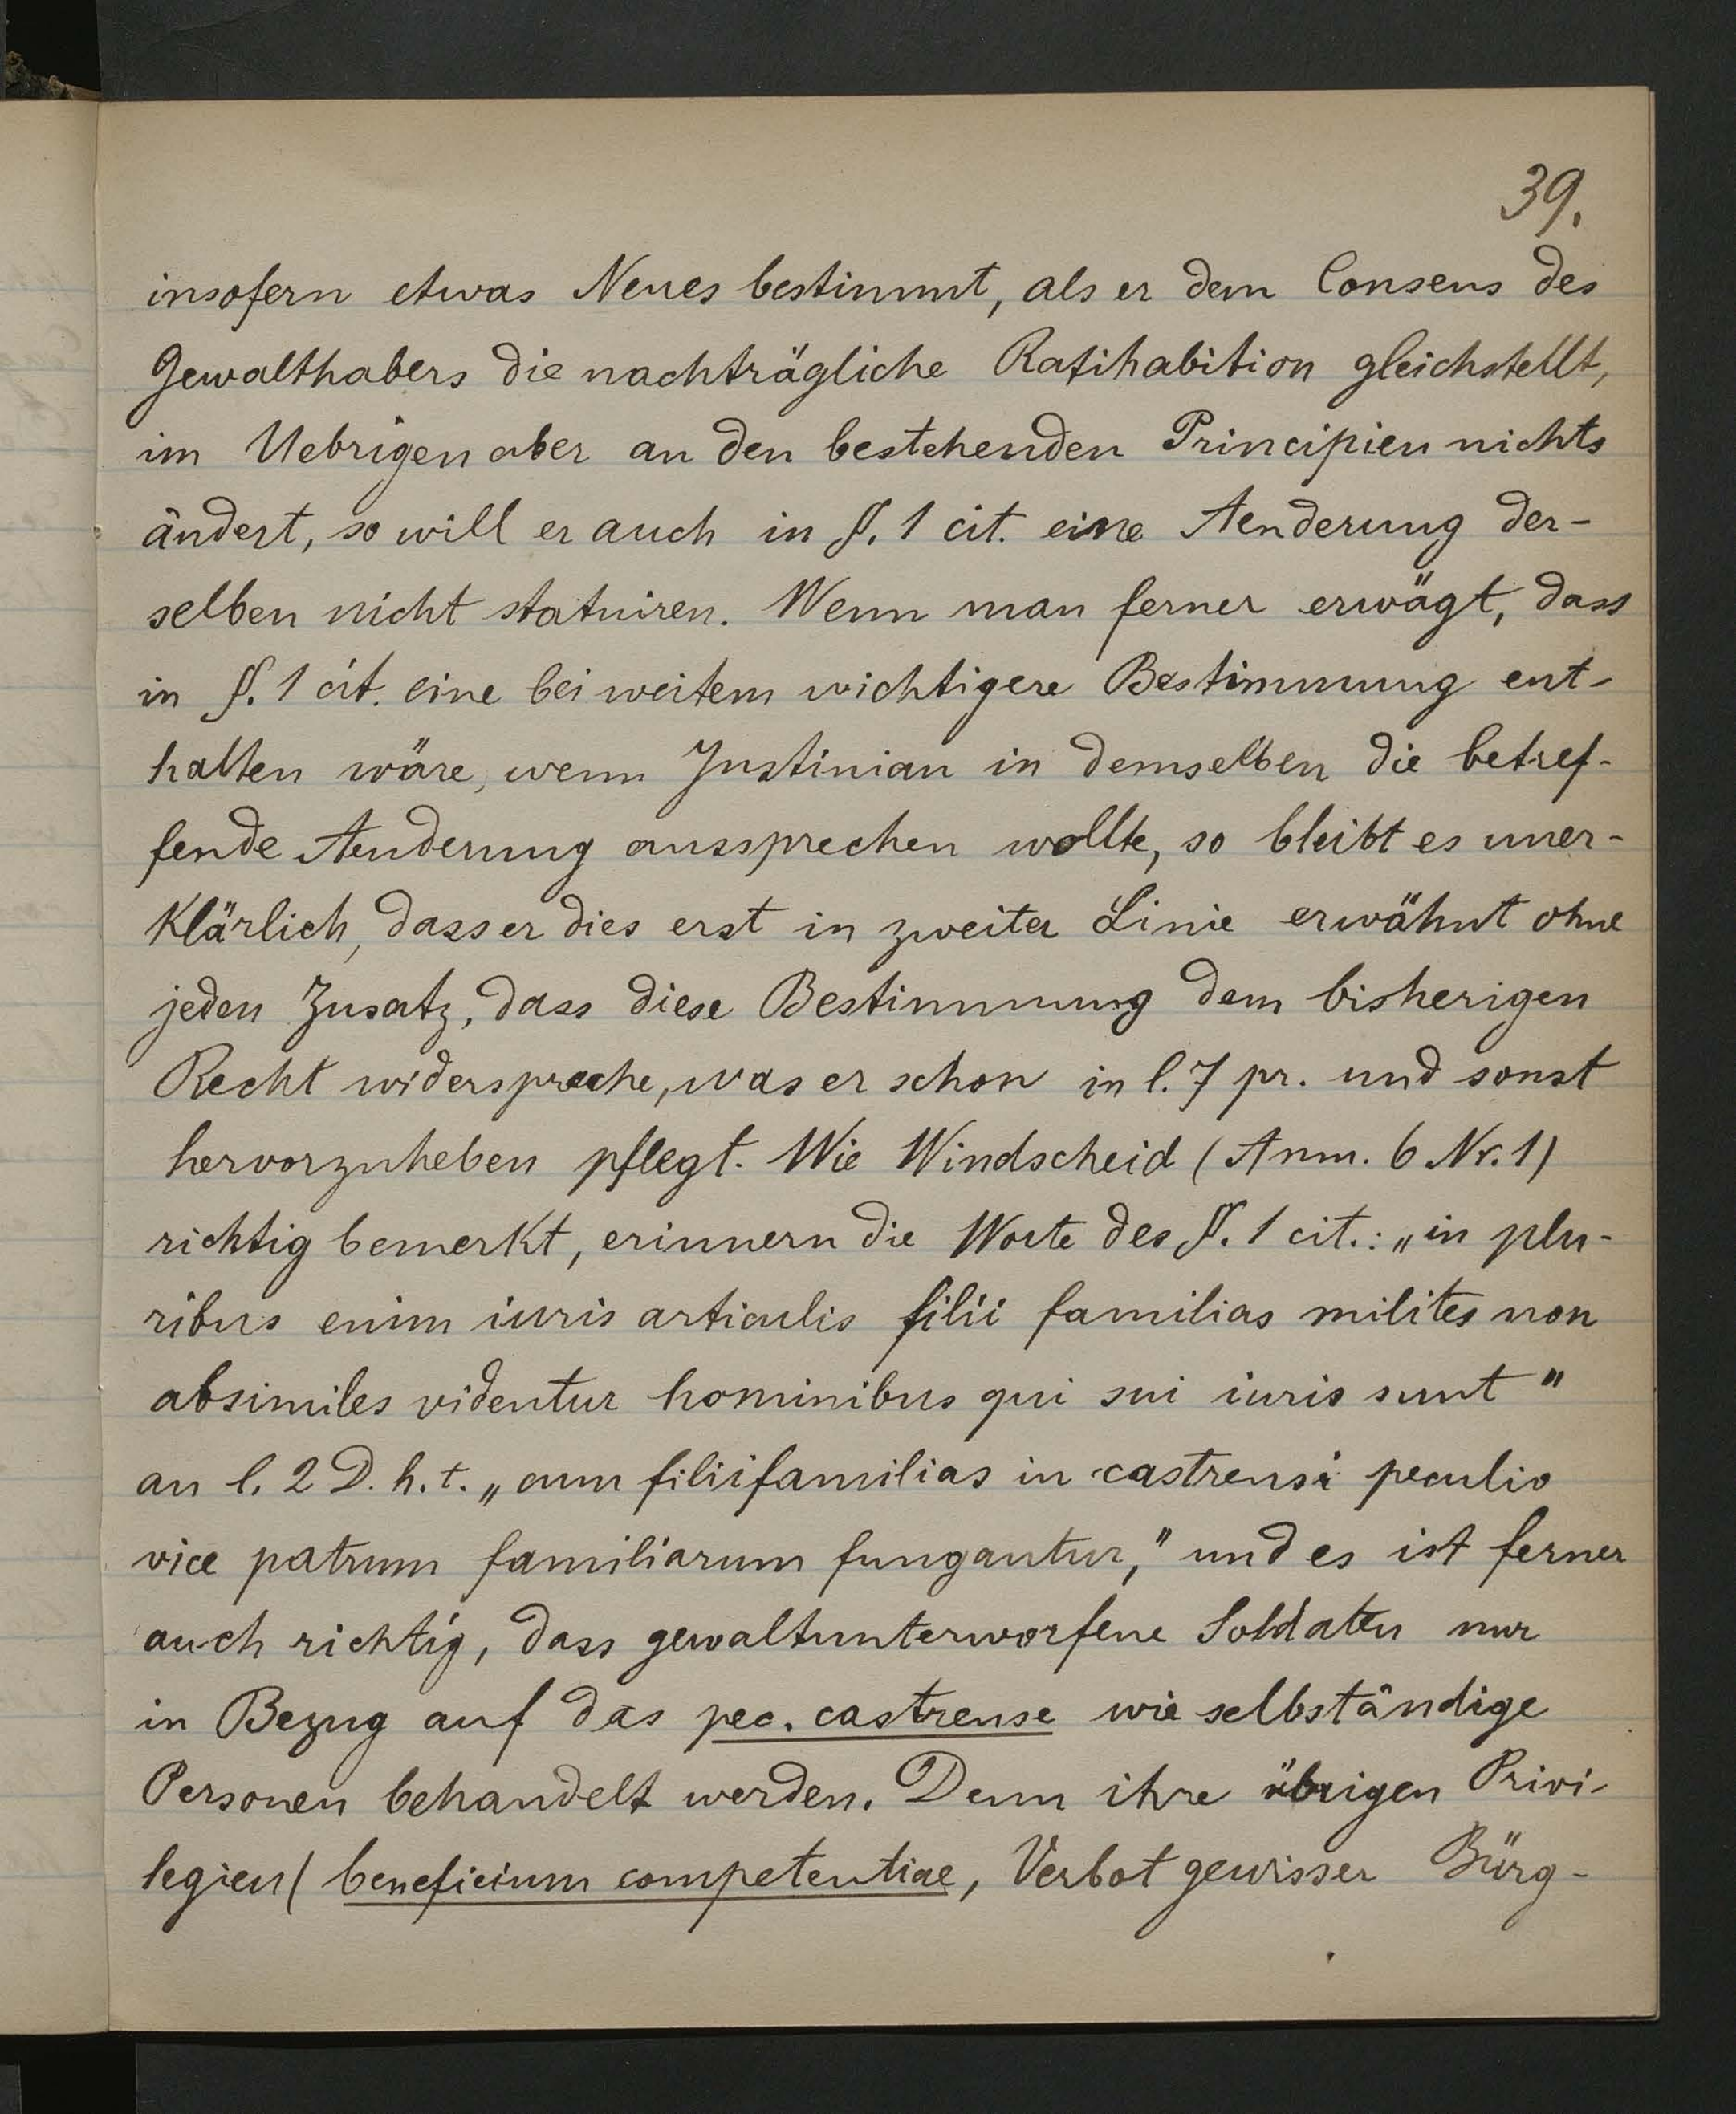 39.
insofern etwas Neues bestimmt, als er dem Consens des
Gewalthabers die nachträgliche Ratihabition gleichstellt,
im Uebrigen aber an den bestehenden Principien nichts
ändert, so will er auch in §. 1 cit. eine Aenderung der-
selben nicht statuiren. Wenn man ferner erwägt, dass
in §. 1 cit. eine bei weitem wichtigere Bestimmung ent-
halten wäre, wenn Justinian in demselben die betref-
fende Aenderung aussprechen wollte, so bleibt es uner-
klärlich, dass er dies erst in zweiter Linie erwähnt ohne
jeden Zusatz, dass diese Bestimmung dem bisherigen
Recht widerspreche, was er schon in l. 7 pr. und sonst
hervorzuheben pflegt. Wie Windscheid (Anm. 6 Nr. 1)
richtig bemerkt, erinnern die Worte des §. 1 cit.: „in plu-
ribus enim iuris articulis filii familias milites non
absimiles videntur hominibus qui sui iuris sunt"
an l. 2 D. h. t. „cum filiifamilias in castrensi peculio
vice patrum familiarum fungantur," und es ist ferner
auch richtig, dass gewaltunterworfene Soldaten nur
in Bezug auf das pec. castrense wie selbständige
Personen behandelt werden. Denn ihre übrigen Privi-
legien (beneficium competentiae, Verbot gewisser Bürg-